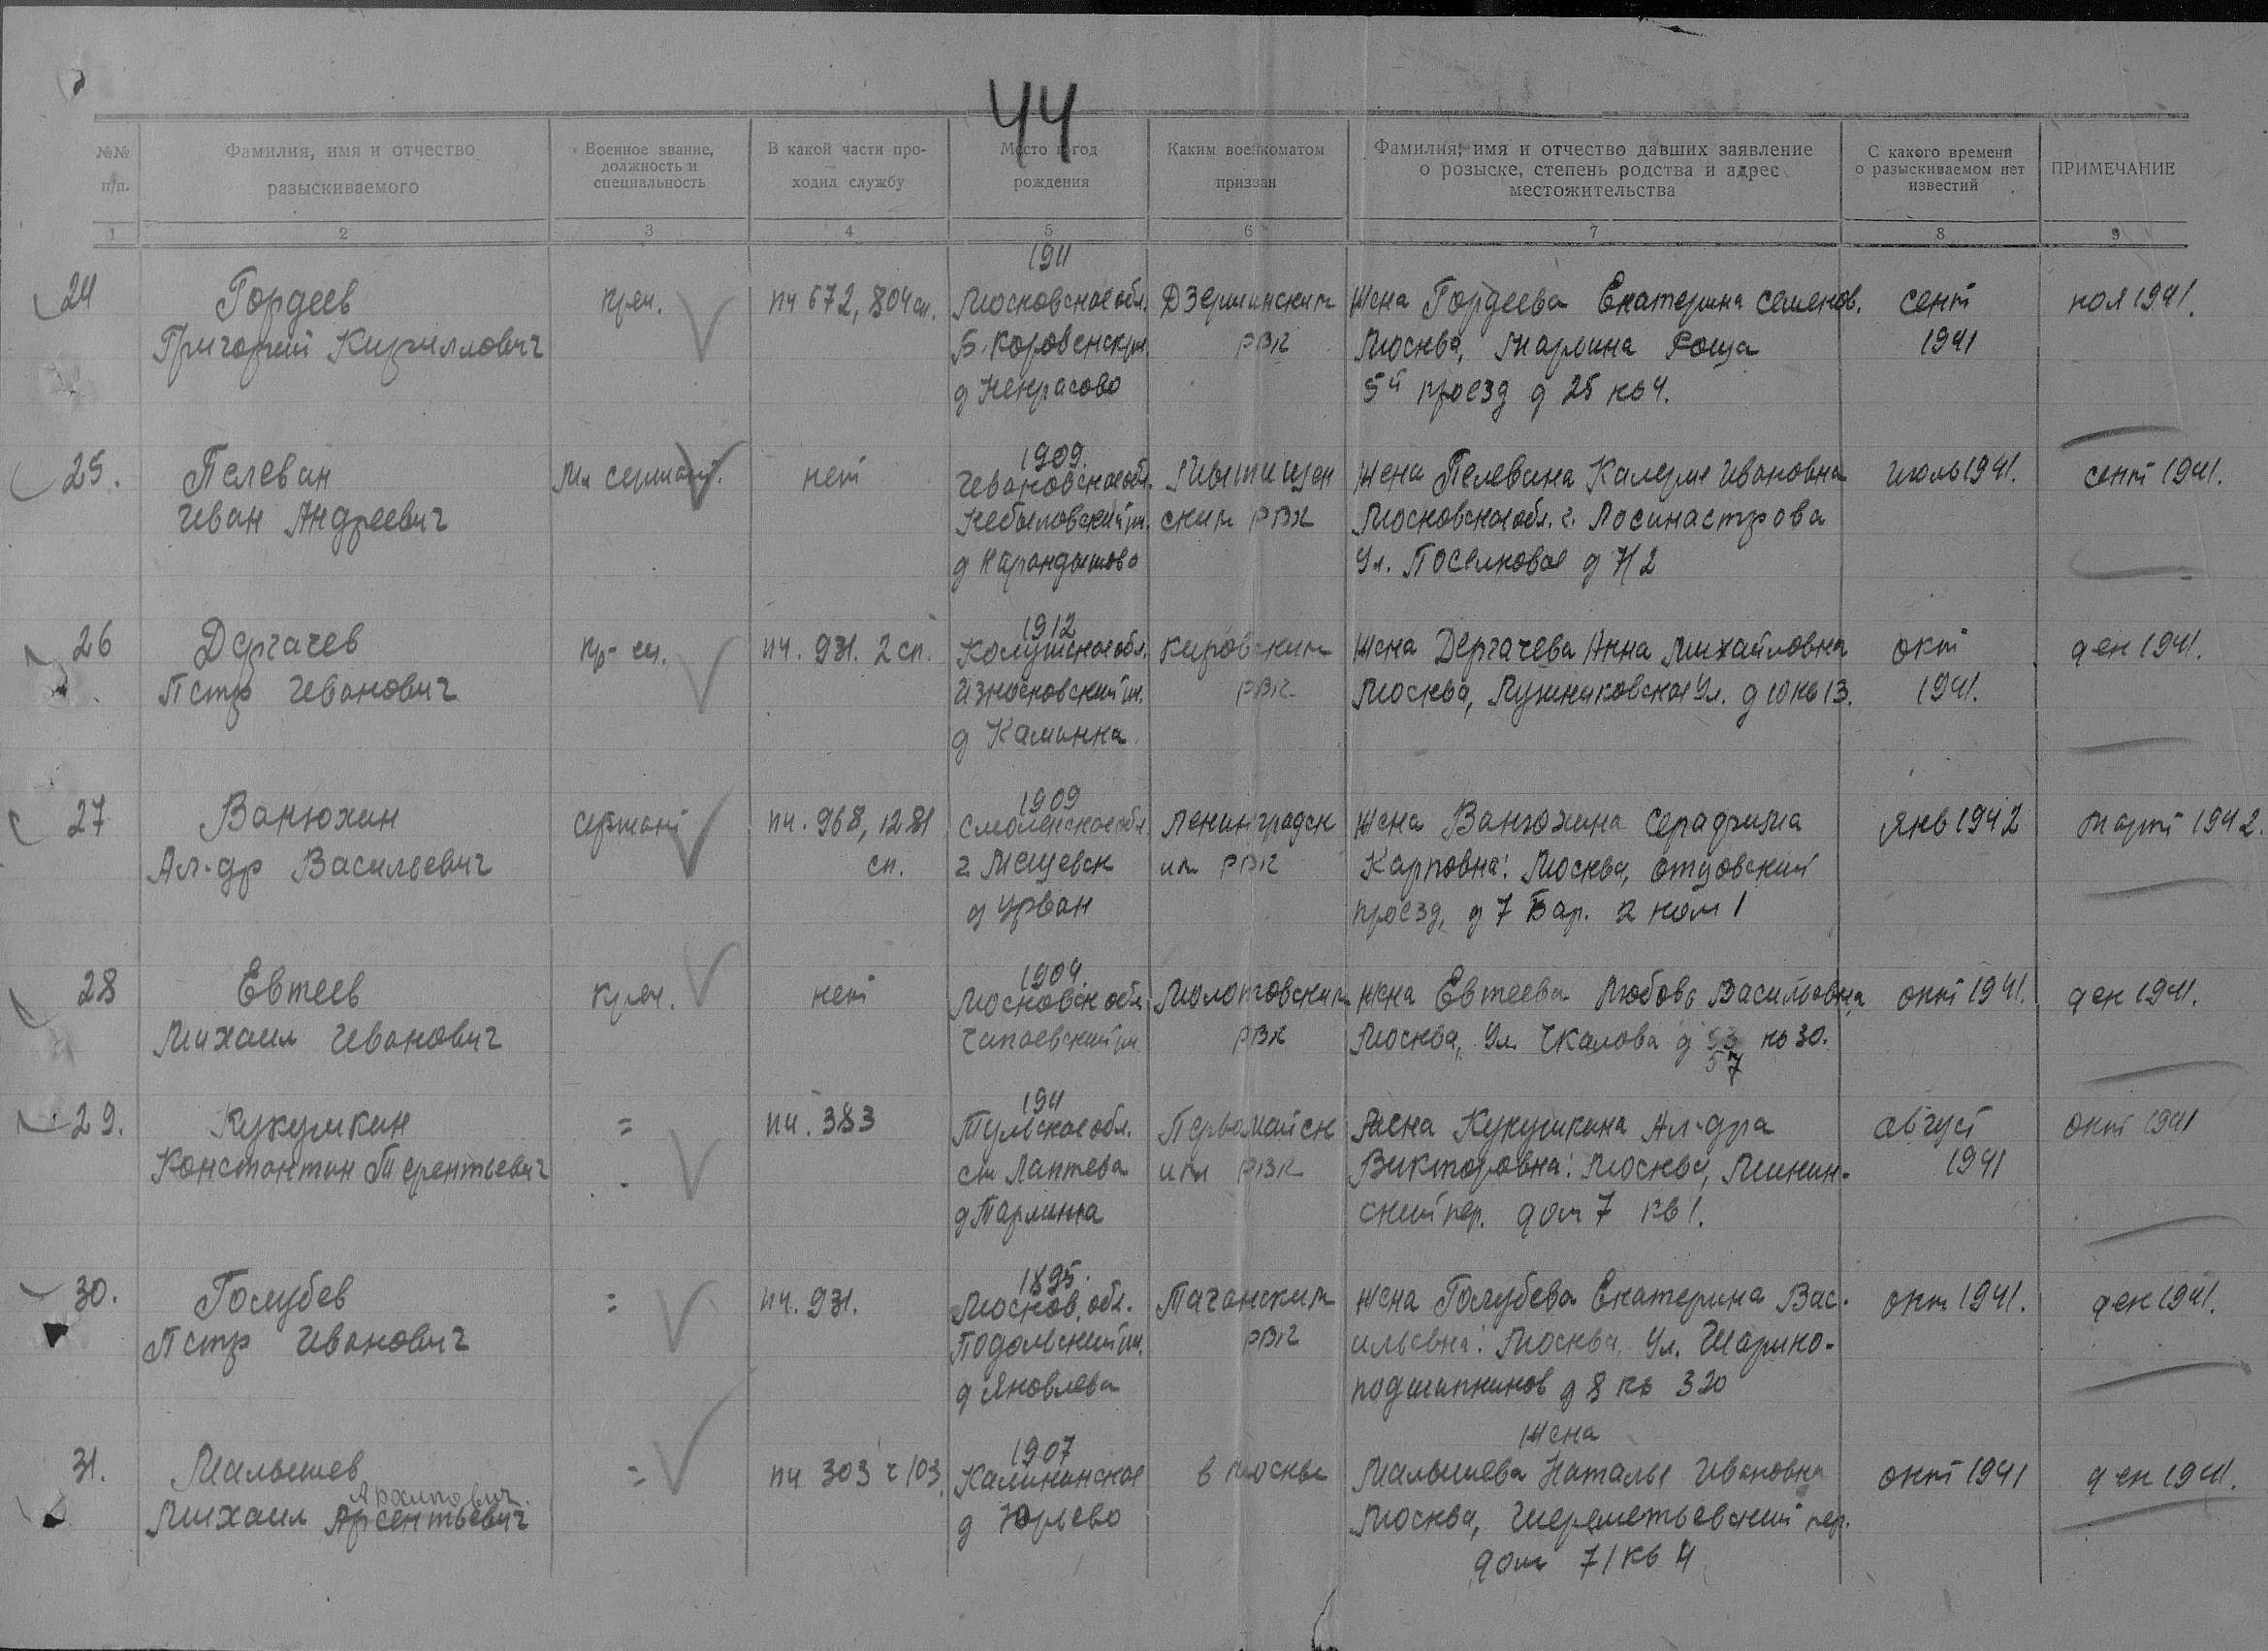 44
№№ п/п.
Фамилия, имя и отчество разыскиваемого
Военное звание, должность и специальность
В какой части проходил службу
Место и год рождения
Каким военкоматом призван
Фамилия, имя и отчество давших заявление о розыске, степень родства и адрес местожительства
С какого времени о разыскиваемом нет известий
ПРИМЕЧАНИЕ
1 2 3 4 5 6 7 8 9
1911
24 Гордеев кр-ц. пч 672, 804 сп. Московская обл. Дзержинским Жена Гордеева Екатерина Семенов. сент ноя 1941.
Григорий Кириллович РВК Москва, Марьина Роща 1941
д Некрасово 5й проезд д 25 кв 4.
1909.
25. Пелеван Мл сержант. нет Ивановская обл. Мытищен Жена Пелевина Ивановна июль 1941. сент 1941.
Иван Андреевич Небыловский рн. ским РВК Московская обл. г. Лосинастрова
д Карандышово Ул. Поселковая д 7/2
1912
26 Дергачев кр-ц. пч. 931. 2 сп. Калужская обл. Кировским Жена Дергачева Анна Михайловна окт дек 1941.
Петр Иванович Износковский рн. РВК Москва, Ул. д 10 кв 13. 1941.
д Каменка
1909
27 Ванюхин сержант пч. 968, 1281 Смоленская обл Ленинградск Жена Ванюхина Серафима янв 1942 март 1942.
Ал-др Васильевич сп. г. Мещевск им РВК Карповна: Москва,
д Урван проезд, д 7 Бар. 2 ком 1
1904
28 Евтеев кр-ц. нет Московск обл Молотовским Жена Евтеева Любовь Васильевна окт 1941. дек 1941.
Михаил Иванович Чапаевский рн РВК Москва, Ул. Чкалова д 53 кв 30.
57
1911
29. Кукушкин = пч. 383 Тульская обл. Первомайск Жена Кукушкина Ал-дра август окт 1941
Константин Терентьевич ст Лаптева им РВК Викторовна: Москва, Минин- 1941
ский пер. дом 7 кв 1.
1895.
30. Голубев = пч. 931. Москов. обл. Таганским Жена Голубева Екатерина Вас- окт 1941. дек 1941.
Петр Иванович Подольский рн. РВК ильевна: Москва, Ул. Шарико-
д Яковлева подшипников д 8 кв 320
Жена
1907
31. Малышев = пч 303 ч 103. Калининская в Москве Малышева Наталья Ивановна окт 1941 дек 1941.
Архипович.
Михаил Арсентьевич д Юрьево Москва, Шереметьевский пер.
дом 71 кв 4